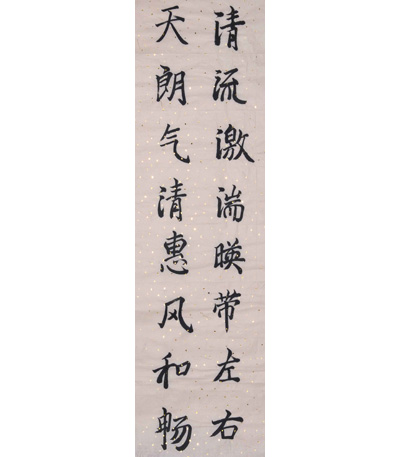 清流激湍暎带左右
天朗气清惠风和畅